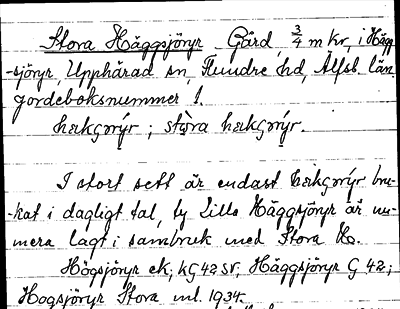 Stora Häggsjöryr Gård, 3/4 m kr, i Hägg-
-sjöryr, Upphärad sn, Flundre hd, Älfsb. län.
Jordeboksnummer 1.
stora
I stort sett är endast bru-
-kat i dagligt tal, ty Lilla Häggsjöryr är nu-
mera lagt i sambruk med Stora H.
Högsjöryr ek, KG 42 SV, Häggsjöryr G 42;
Hogsjöryr Stora ml. 1934.